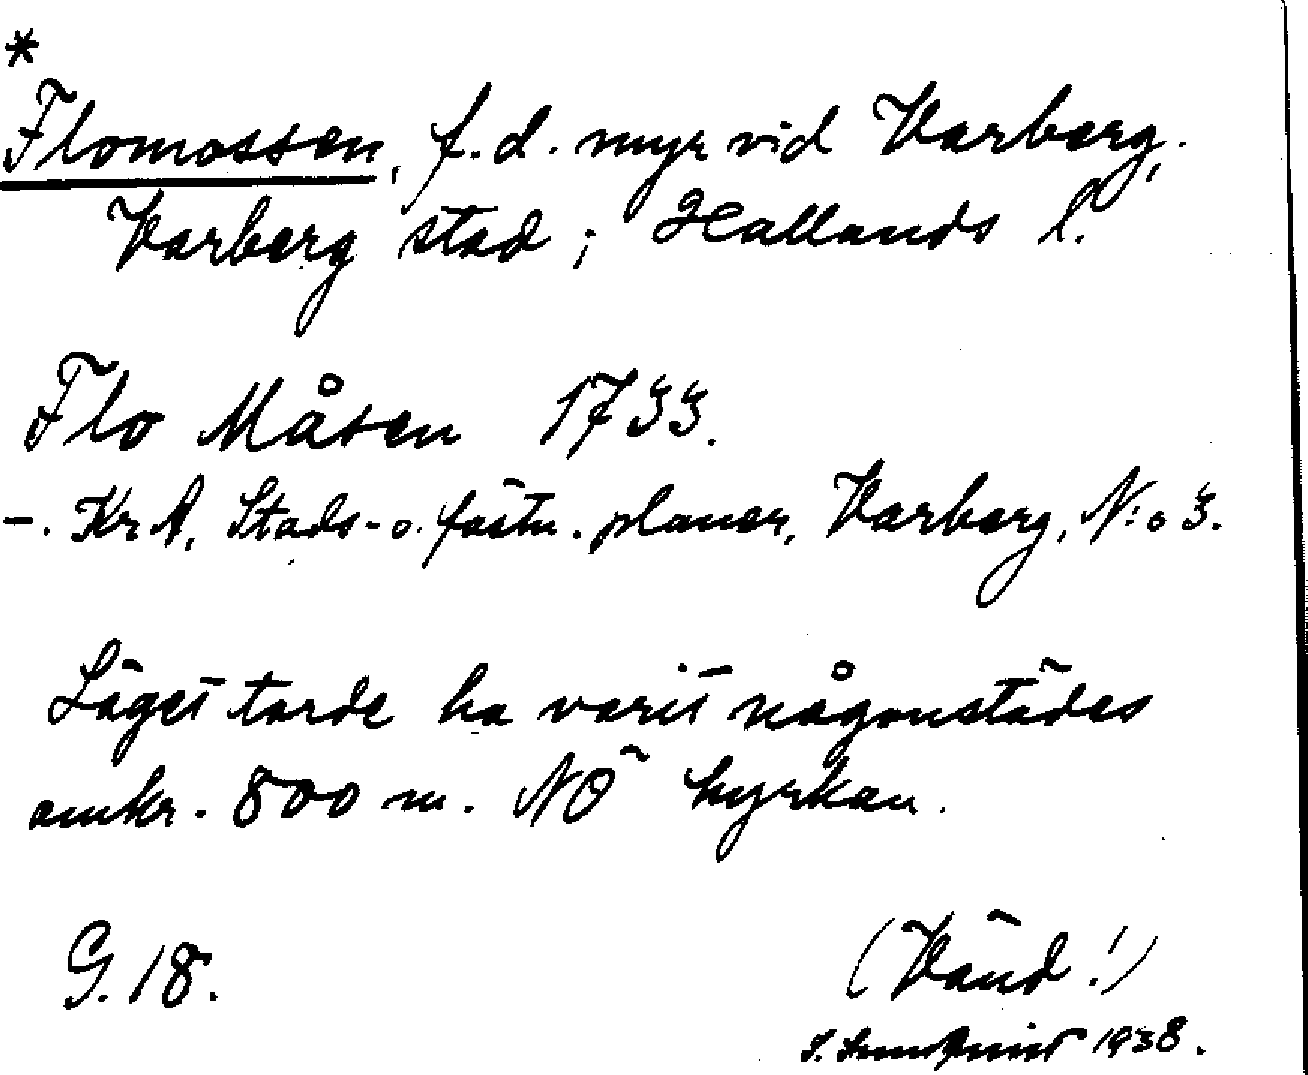 *
Flomossen, f.d. myr vid Varberg,
Varberg stad; Hallands l.
Flo Måsen 1733.
-. KrA, Stads- o. fästn. planer, Varberg, N:o 3.
Läget torde ha varit någonstädes
omkr. 800 m. NÖ kyrkan.
G. 18.
(Vänd!)
1938.